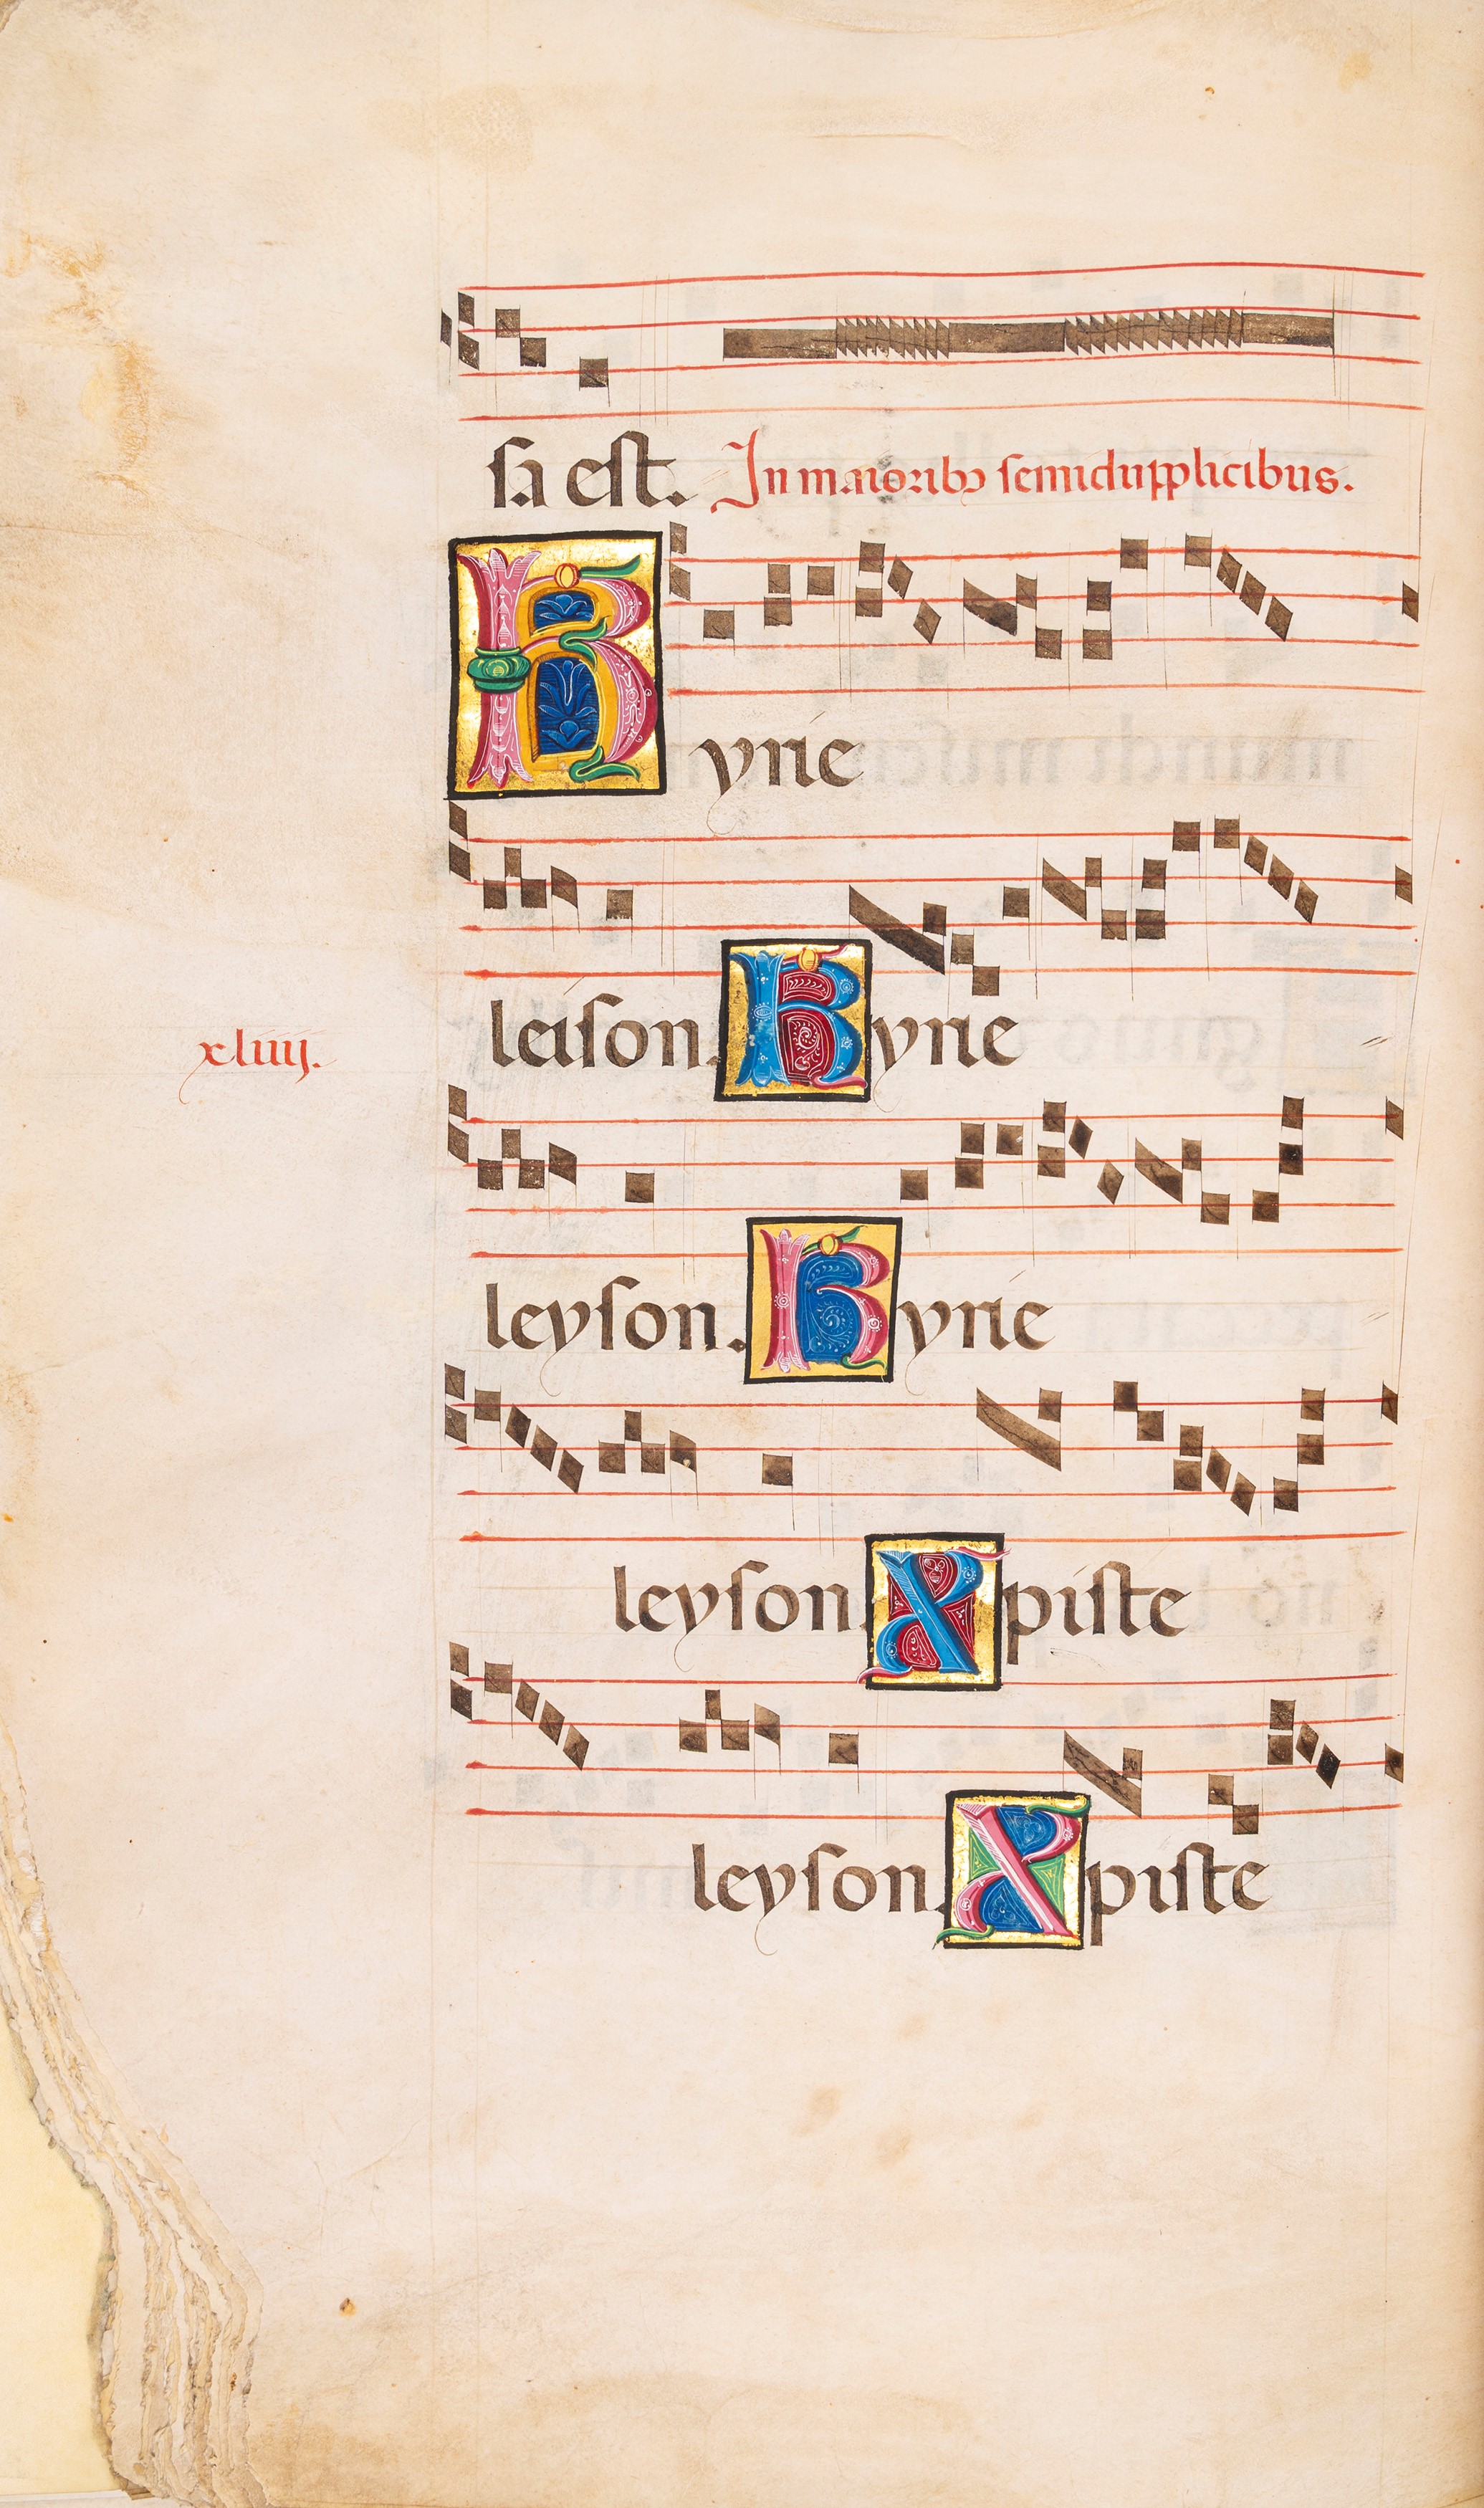 sa est. In maioribꝫ semidupplicibus.
Kyrie
leison. Kyrie
xliiij.
leyson. Kyrie
leyson. Xpiste
leyson. Xpiste